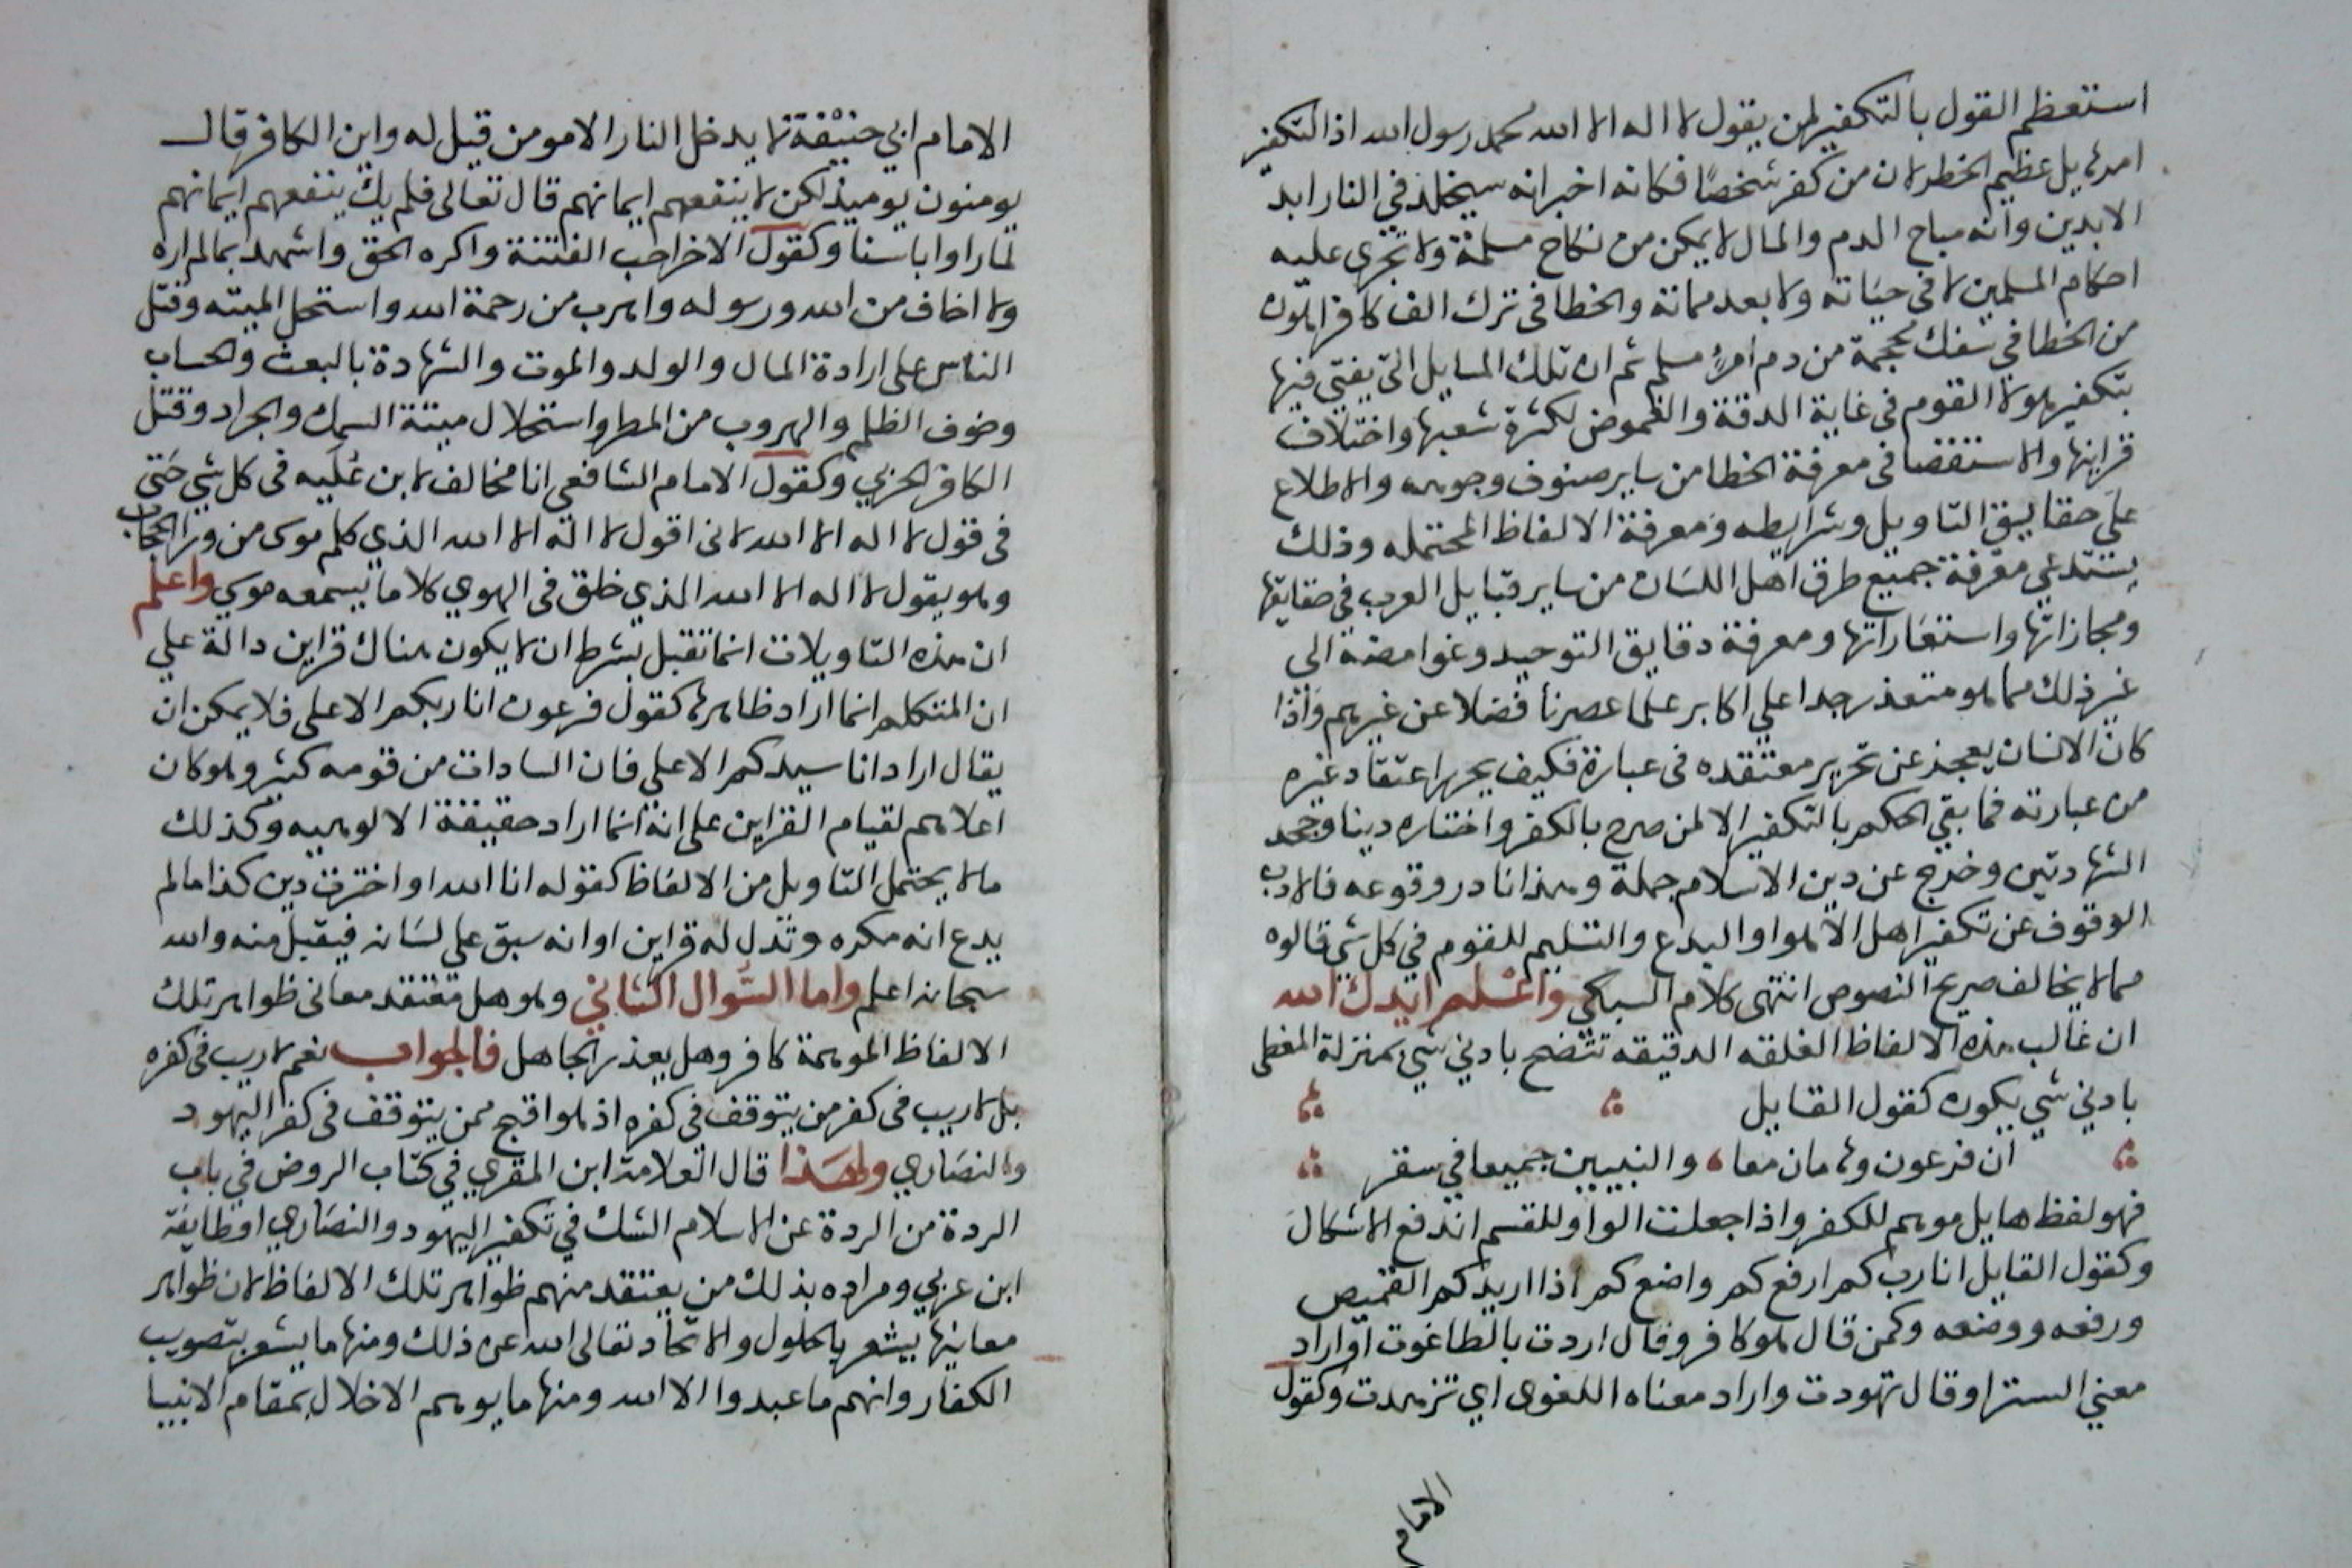 استعظم القول بالتكفير لمن يقول لا اله الا الله محمد رسول الله اذ التكفير
امر هايل عظيم الخطر لان من كفر شخصا فكانه اخبر انه سيخلد في النار ابد
الابدين وانه مباح الدم والمال لا يمكن من نكاح مسلمة ولا تجرى عليه
احكام المسلمين لا في حياته ولا بعد مماته والخطا في ترك الف كافر اهون
من الخطا في سفك محجمة من دم امرئ مسلم ثم ان تلك المسايل التي يفتي فيها
بتكفير هولا القوم في غاية الدقة والغموض لكثرة شعبها واختلاف
قراينها والاستقصا في معرفة الخطا من ساير صنوف وجوهه والاطلاع
على حقايق التاويل وشرايطه ومعرفة الالفاظ المحتمله وذلك
يستدعي معرفة جميع طرق اهل اللسان من ساير قبايل العرب في حقايقها
ومجازاتها واستعاراتها ومعرفة دقايق التوحيد وغوامضه الى
غير ذلك مما هو متعذر جدا علي اكابر علما عصرنا فضلا عن غيرهم واذا
كان الانسان يعجز عن تحرير معتقده في عبارة فكيف يحرر اعتقاد غيره
من عبارته فما بقي الحكم بالتكفير الا لمن صرح بالكفر واختاره دينا وجحد
الشهادتين وخرج عن دين الاسلام جملة وهذا نادر وقوعه فالادب
الوقوف عن تكفير اهل الاهوا والبدع والتسليم للقوم في كل شي قالوه
مما لا يخالف صريح النصوص انتهى كلام السبكي واعلم ايدك الله
ان غالب هذه الالفاظ الغلقه الدقيقه تتضح بادني شي بمنزلة المغطى
بادني شي يكون كقول القايل
ان فرعون وهامان معا والنبيين جميعا في سقر
فهو لفظ هايل موهم للكفر واذا جعلت الواو للقسم اندفع الاشكال
وكقول القايل انا رب كم ارفع كم واضع كم اذا اريد كم القميص
ورفعه ووضعه وكمن قال هو كافر وقال اردت بالطاغوت او اراد
معني الستر او قال تهودت واراد معناه اللغوى اي تزهدت وكقول
الامام
الامام ابي حنيفة لا يدخل النار الا مومن قيل له واين الكافر قال
يومنون يوميذ لكن لا ينفعهم ايمانهم قال تعالى فلم يك ينفعهم ايمانهم
لما راوا باسنا وكقول الاخر احب الفتنة واكره الحق واشهد بما لم اره
ولا اخاف من الله ورسوله واهرب من رحمة الله واستحل الميته وقتل
الناس على ارادة المال والولد والموت والشهادة بالبعث والحساب
وخوف الظلم والهروب من المطر واستحلال ميتة السمك والجراد وقتل
الكافر الحربي وكقول الامام الشافعي انا مخالف لابن علَيه في كل شي حتى
في قول لا اله الا الله لاني اقول لا اله الا الله الذي كلم موسى من ورا الحجاب
وهو يقول لا اله الا الله الذي خلق في الهوي كلاما يسمعه موسي واعلم
ان هذه التاويلات انما تقبل بشرط ان لا يكون هناك قراين دالة علي
ان المتكلم انما اراد ظاهره كقول فرعون انا ربكم الاعلى فلا يمكن ان
يقال اراد انا سيدكم الاعلى فان السادات من قومه كثير وهو كان
اعلاهم لقيام القراين على انه انما اراد حقيقة الالوهيه وكذلك
ما لا يحتمل التاويل من الالفاظ كقوله انا الله او اخترت دين كذا ما لم
يدع انه مكره وتدل له قراين او انه سبق على لسانه فيقبل منه والله
سبحانه اعلم واما السوال الثاني وهو هل معتقد معاني ظواهر تلك
الالفاظ الموهمة كافر وهل يعذر الجاهل فالجواب نعم لا ريب في كفره
بل لا ريب في كفر من يتوقف في كفره اذ هو اقبح ممن يتوقف في كفر اليهود
والنصاري ولهذا قال العلامة ابن المقري في كتاب الروض في باب
الردة من الردة عن الاسلام الشك في تكفير اليهود والنصاري او طايفة
ابن عربي ومراده بذلك من يعتقد منهم ظواهر تلك الالفاظ لان ظواهر
معانيها يشعر بالحلول والاتحاد تعالى الله عن ذلك ومنها ما يشعر بتصويب
الكفار وانهم ما عبدوا الا الله ومنها ما يوهم الاخلال بمقام الانبيا